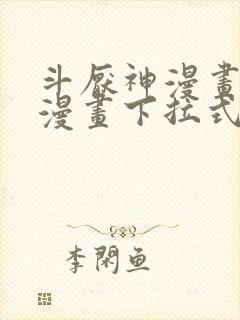 斗厭神漫畫
漫畫下拉式
李閑鱼